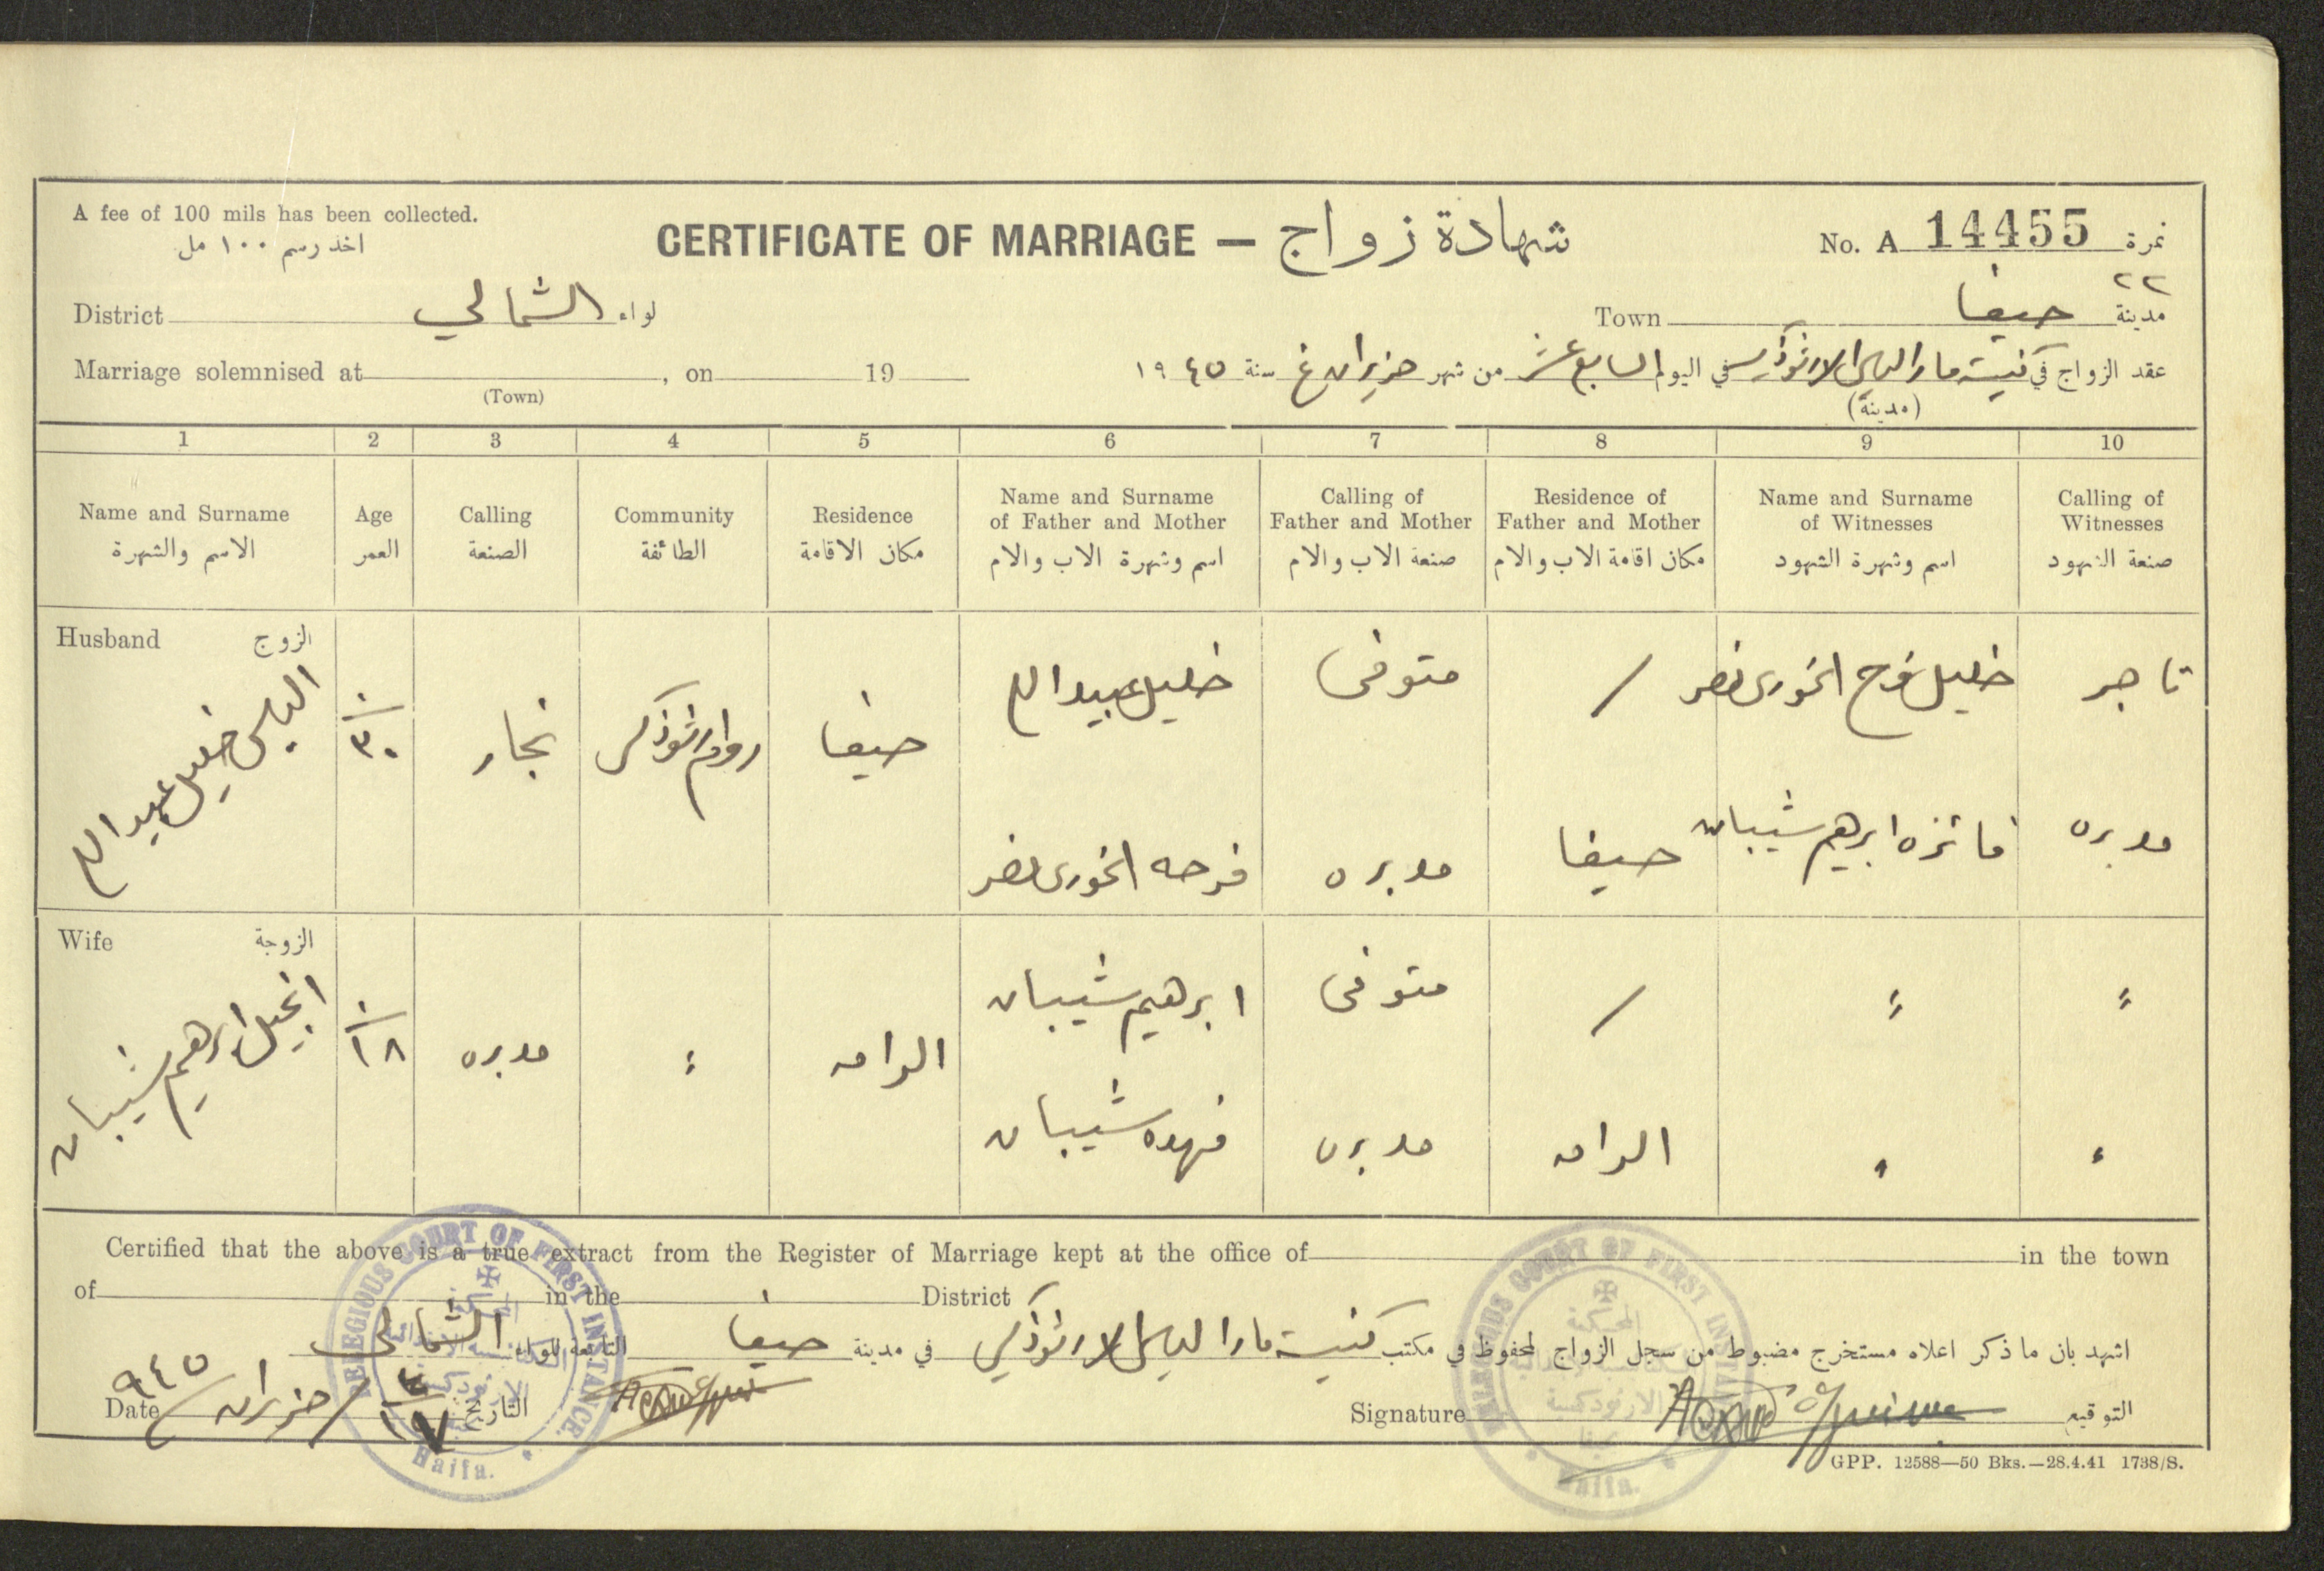 A fee of 100 mils has been collected.
اخذ رسم ١٠٠ مل
CERTIFICATE OF MARRIAGE — شهادة زواج
No. A 14455 نمرة
٢٢
District الشمالي لواء
Town حيفا مدينة
Marriage solemnised at , on 19
(Town)
عقد الزواج في كنيسة مار الياس الارثوذكسي في اليوم السابع عشر من شهر حزيران غ سنة ١٩٤٥
(مدينة)
1 2 3 4 5 6 7 8 9 10
Name and Surname
الاسم والشهرة
Age
العمر
Calling
الصنعة
Community
الطائفة
Residence
مكان الاقامة
Name and Surname
of Father and Mother
اسم وشهرة الاب والام
Calling of
Father and Mother
صنعة الاب والام
Residence of
Father and Mother
مكان اقامة الاب والام
Name and Surname
of Witnesses
اسم وشهرة الشهود
Calling of
Witnesses
صنعة الشهود
Husband الزوج
الياس خليل عبيد الله
٣٠
نجار
روم ارثوذكس
حيفا
خليل عبيد الله
فرحه الخوري نصر
متوفى
مدبره
/
حيفا
خليل فرح الخوري نصر
فائزه ابرهيم شيبان
تاجر
مدبره
Wife الزوجة
انجيل ابرهيم شيبان
١٨
مدبره
الرامه
ابرهيم شيبان
فهده شيبان
متوفى
مدبره
/
الرامه
Certified that the above is a true extract from the Register of Marriage kept at the office of in the town
of in the District
اشهد بان ما ذكر اعلاه مستخرج مضبوط من سجل الزواج المحفوظ في مكتب كنيسة مار الياس الارثوذكسي في مدينة حيفا التابعة للواء الشمالي
Date ١٧ / حزيران / ٩٤٥ التاريخ
Signature التوقيع
RELEGIOUS COURT OF FIRST INSTANCE.
Haifa.
RELEGIOUS COURT OF FIRST INSTANCE.
المحكمة
الارثوذكسية
Haifa.
GPP. 12588—50 Bks.—28.4.41 1738/S.